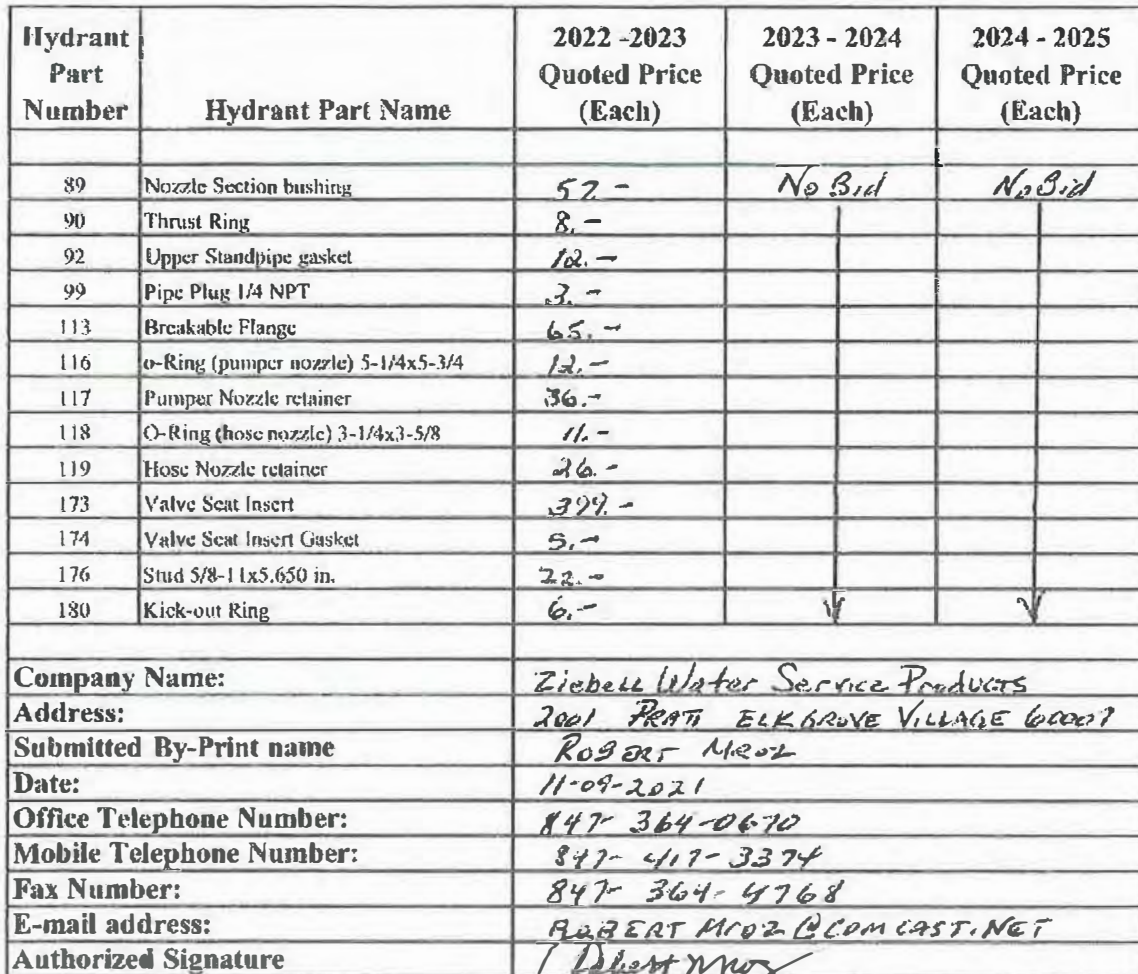 Hydrant Part Number Hydrant Part Name 2022 -2023 Quoted Price (Each) 2023 - 2024 Quoted Price (Each) 2024 - 2025 Quoted Price (Each)
89 Nozzle Section bushing 57.- No Bid No Bid
90 Thrust Ring 8.-
92 Upper Standpipe gasket 12.-
99 Pipe Plug 1/4 NPT 3.-
113 Breakable Flange 65.-
116 o-Ring (pumper nozzle) 5-1/4x5-3/4 12.-
117 Pumper Nozzle retainer 36.-
118 O-Ring (hose nozzle) 3-1/4x3-5/8 11.-
119 Hose Nozzle retainer 26.-
173 Valve Seat Insert 399.-
174 Valve Seat Insert Gasket 5.-
176 Stud 5/8-11x5.650 in. 22.-
180 Kick-out Ring 6.-
Company Name: Ziebell Water Service Products
Address: 2001 PRATT ELK GROVE VILLAGE 60007
Submitted By-Print name Robert Mroz
Date: 11-09-2021
Office Telephone Number: 847-364-0670
Mobile Telephone Number: 847-417-3374
Fax Number: 847-364-4768
E-mail address: ROBERT MROZ@COMCAST.NET
Authorized Signature Robert Mroz